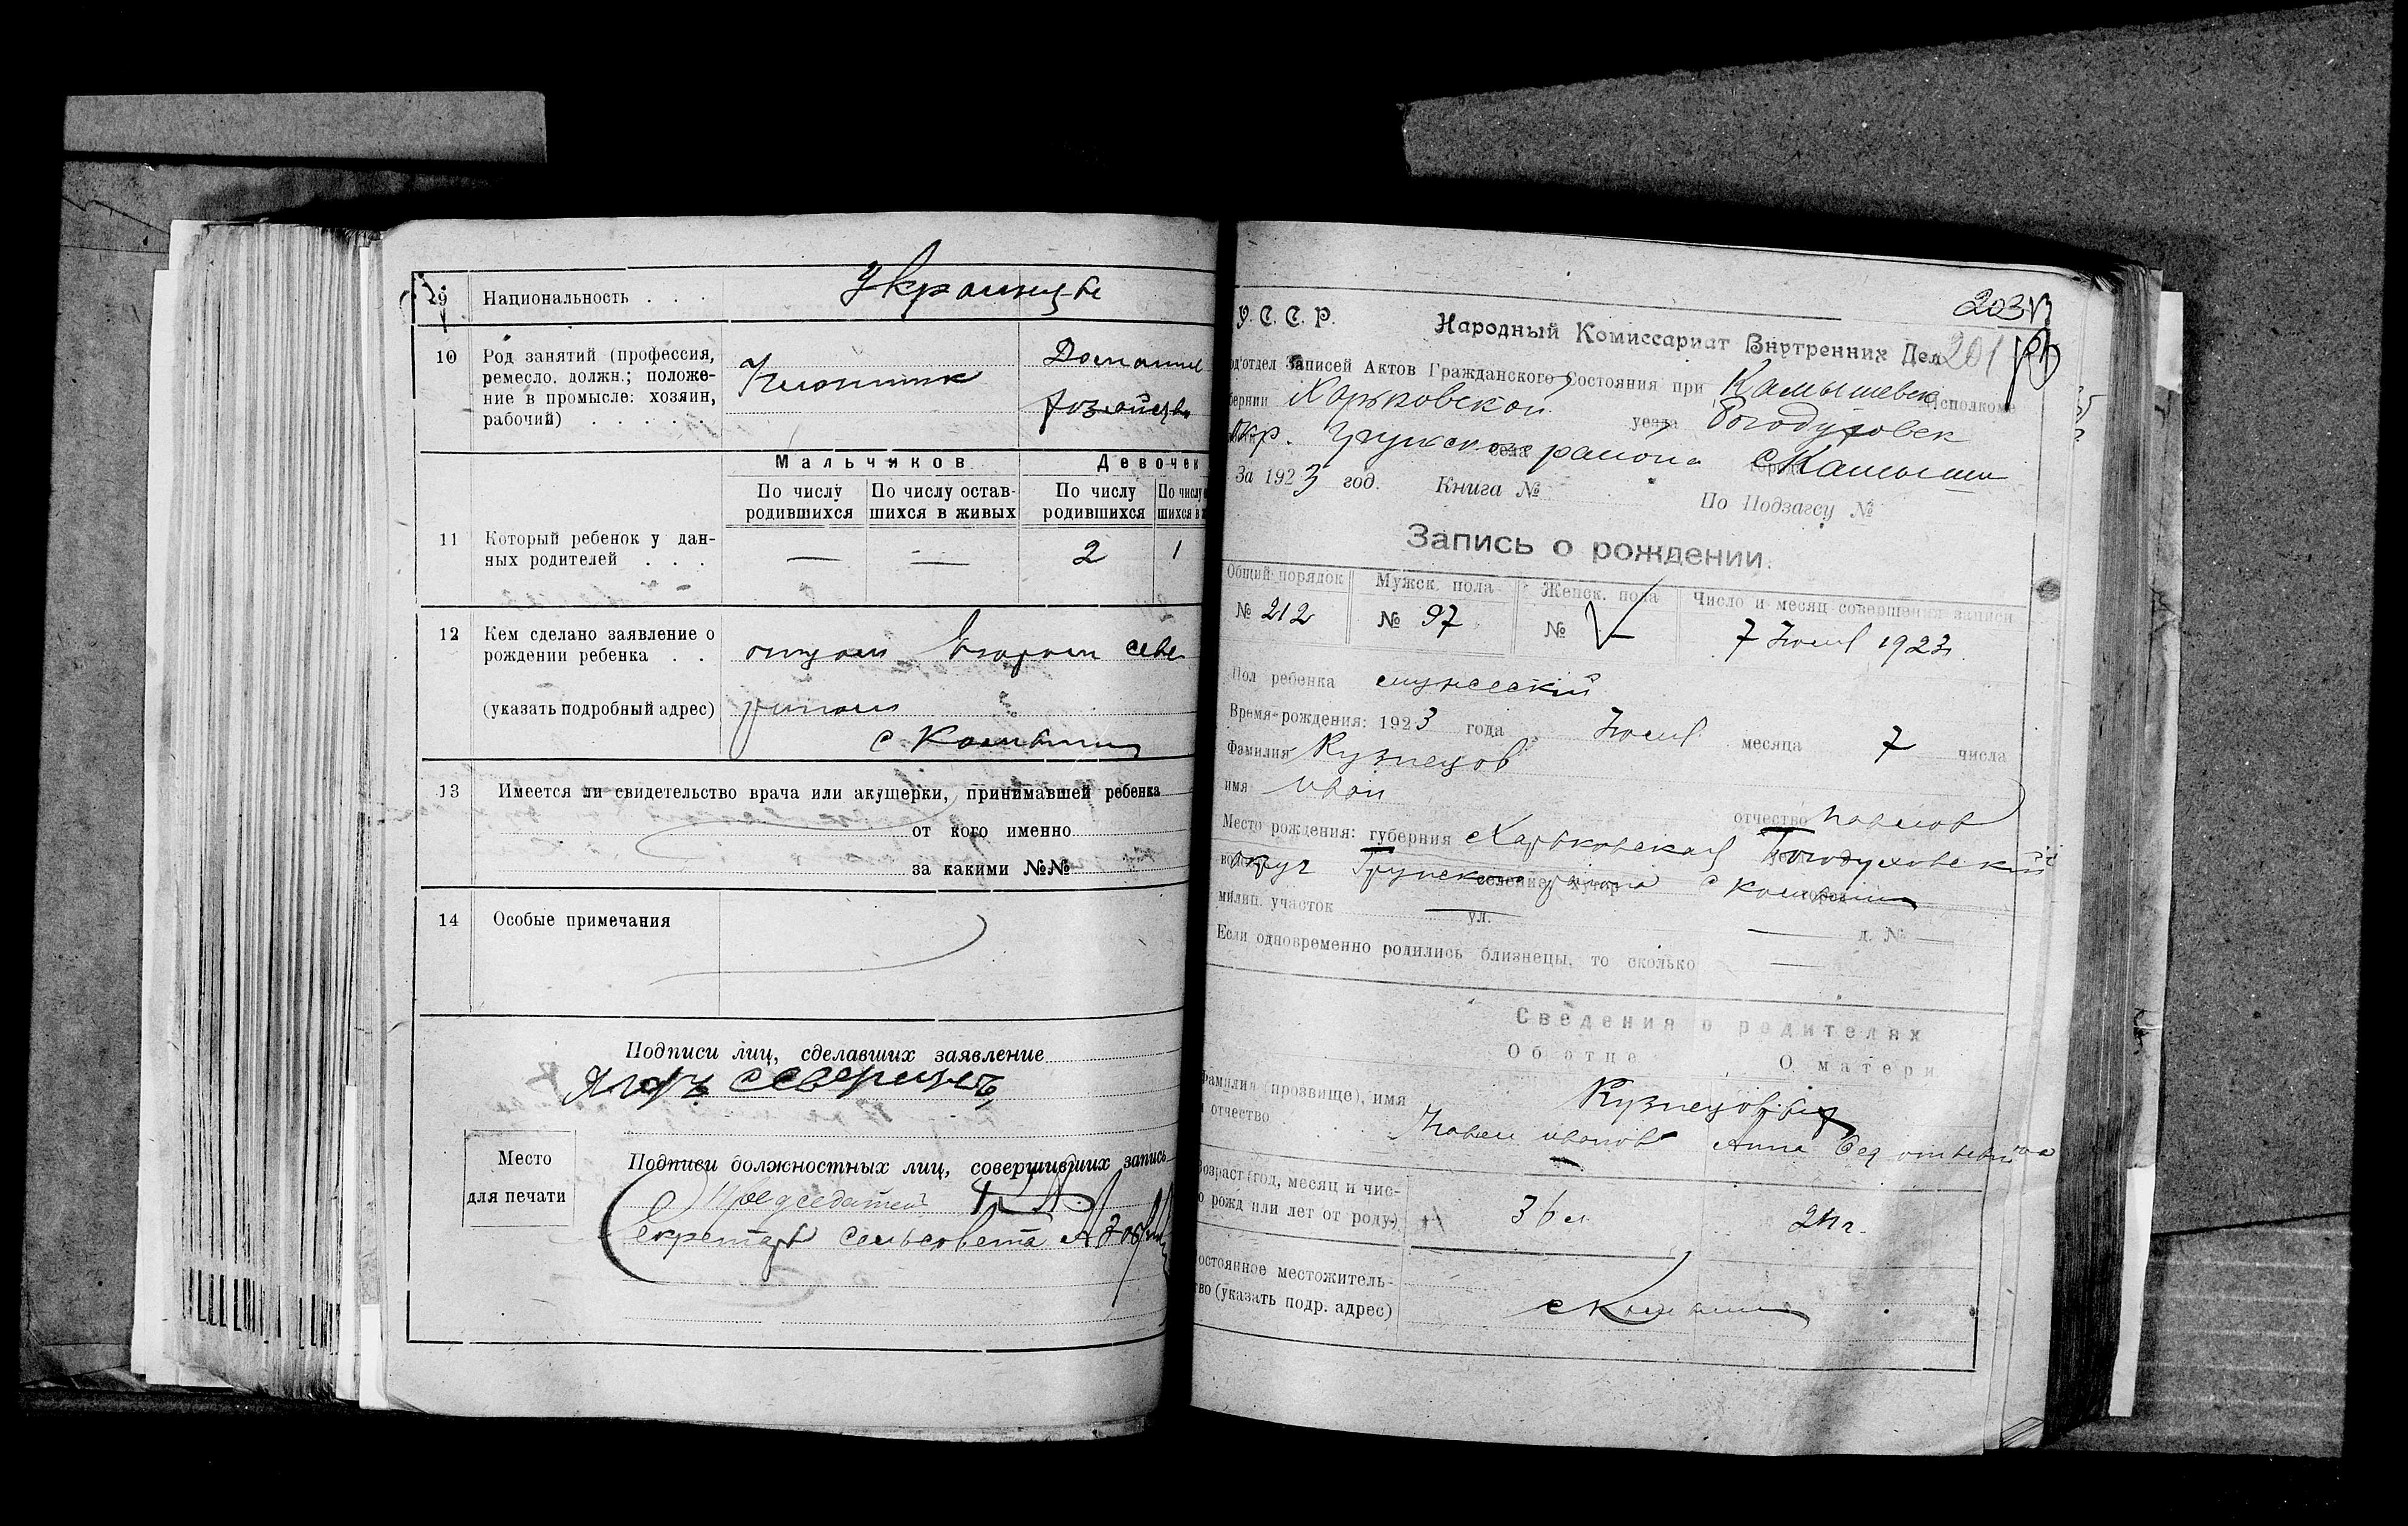 9 Национальность . . . Украинцы
10 Род занятий (профессия, ремесло, должн.; положе-
ние в промысле: хозяин,
рабочий) . . . . . .
Домашнее
хозяйство
Мальчиков Девочек
По числу родившихся По числу остав-шихся в живых По числу родившихся По числу
11 Который ребенок у дан-
ных родителей . . . — — 2 1
12 Кем сделано заявление о
рождении ребенка . . отцом Егором Севе
(указать подробный адрес) риным
с Камыши
13 Имеется ли свидетельство врача или акушерки, принимавшей ребенка
от кого именно
за какими №№
14 Особые примечания
Подписи лиц, сделавших заявление
Северинъ
Место
для печати
Подписи должностных лиц, совершивших запись
Председатель
Секретарь Сельсовета
203
У. С. С. Р. Народный Комиссариат Внутренних Дел 201
одотдел Записей Актов Гражданского Состояния при Камышевск Исполкоме
бернии Харьковской уезда Богодуховск
окр. Грунского района села города с Камыши
За 1923 год. Книга № По Подзагсу №
Запись о рождении.
Общий порядок Мужск. пола Женск. пола Число и месяц совершения записи
№ 212 № 97 № 7 Июля 1923
Пол ребенка мужеский
Время рождения: 1923 года Июля месяца 7 числа
Фамилия Кузнецов
имя Иван отчество Павлов
Место рождения: губерния Харьковская Богодуховский
округ Грунского района с Камыши
милиц. участок — ул. — д. № —
Если одновременно родились близнецы, то сколько —
Сведения о родителях
Об отце О матери
Фамилия (прозвище), имя Кузнецовы
и отчество Павел Иванов Анна
Возраст (год, месяц и чис-
о рожд или лет от роду) 36 л 24 г.
остоянное местожитель-
тво (указать подр. адрес) с Камыши